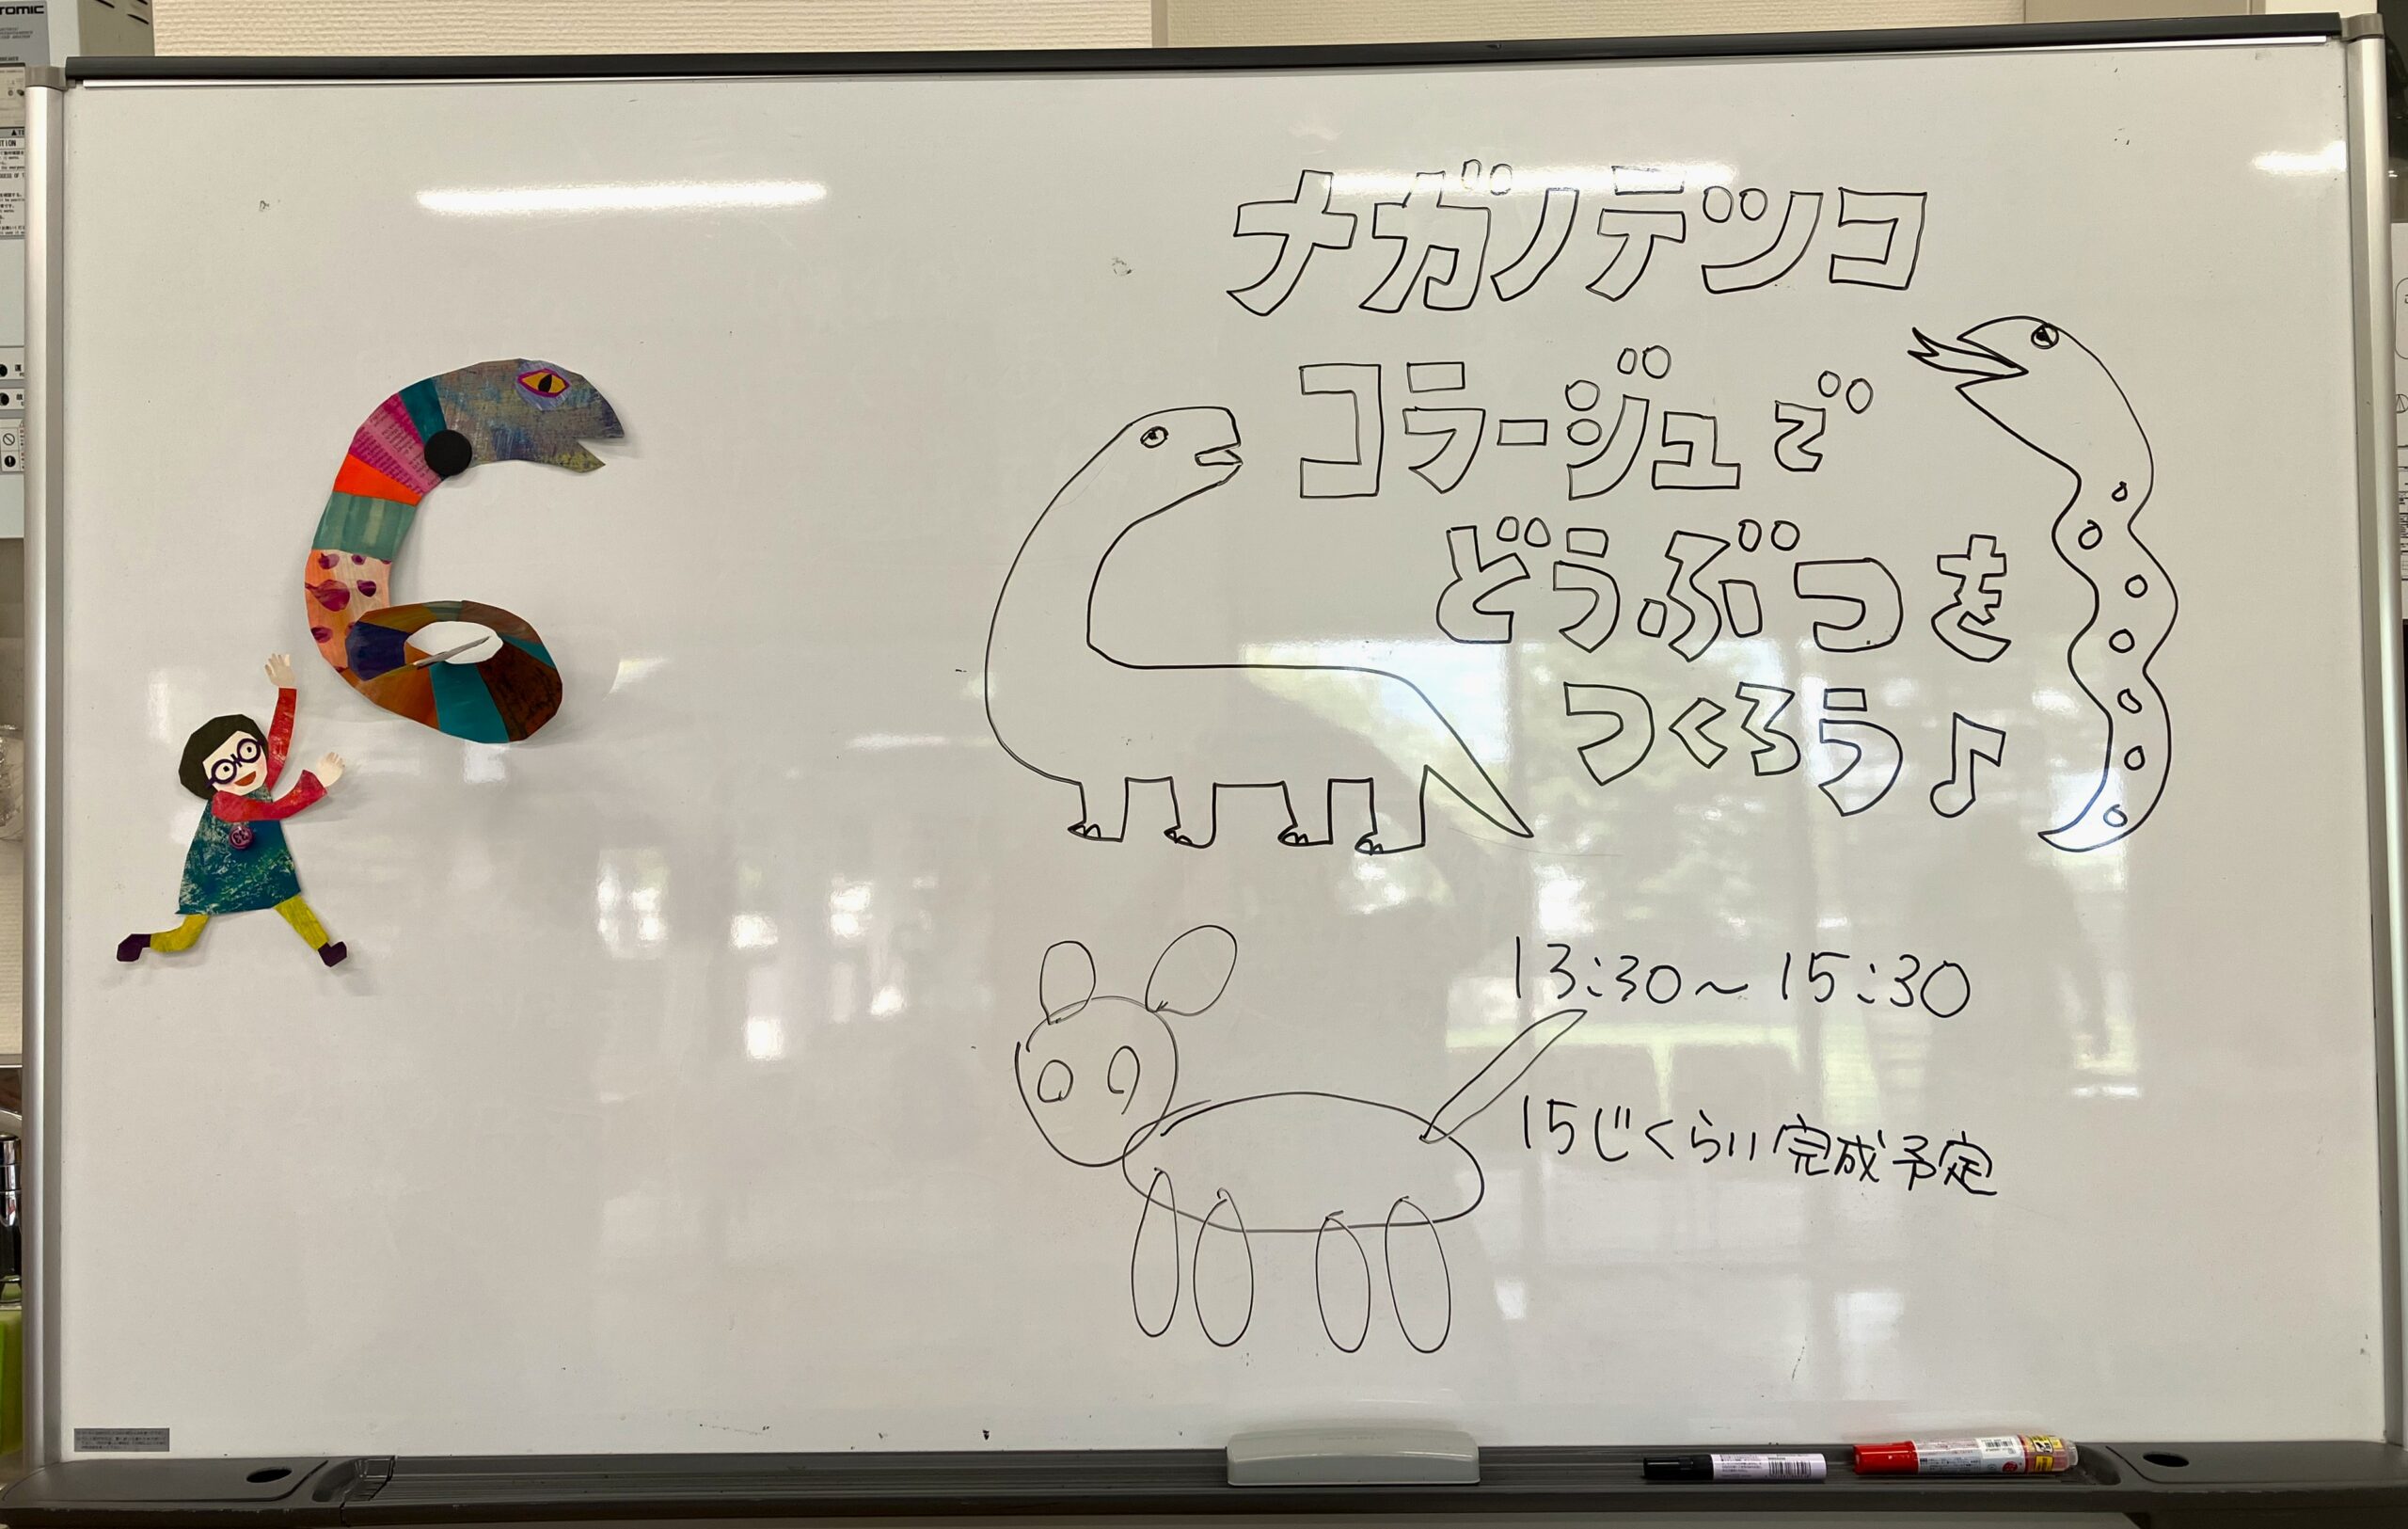 ナガノテツコ
コラージュで
どうぶつを
つくろう♪
13:30〜15:30
15じくらい完成予定
TOMIC